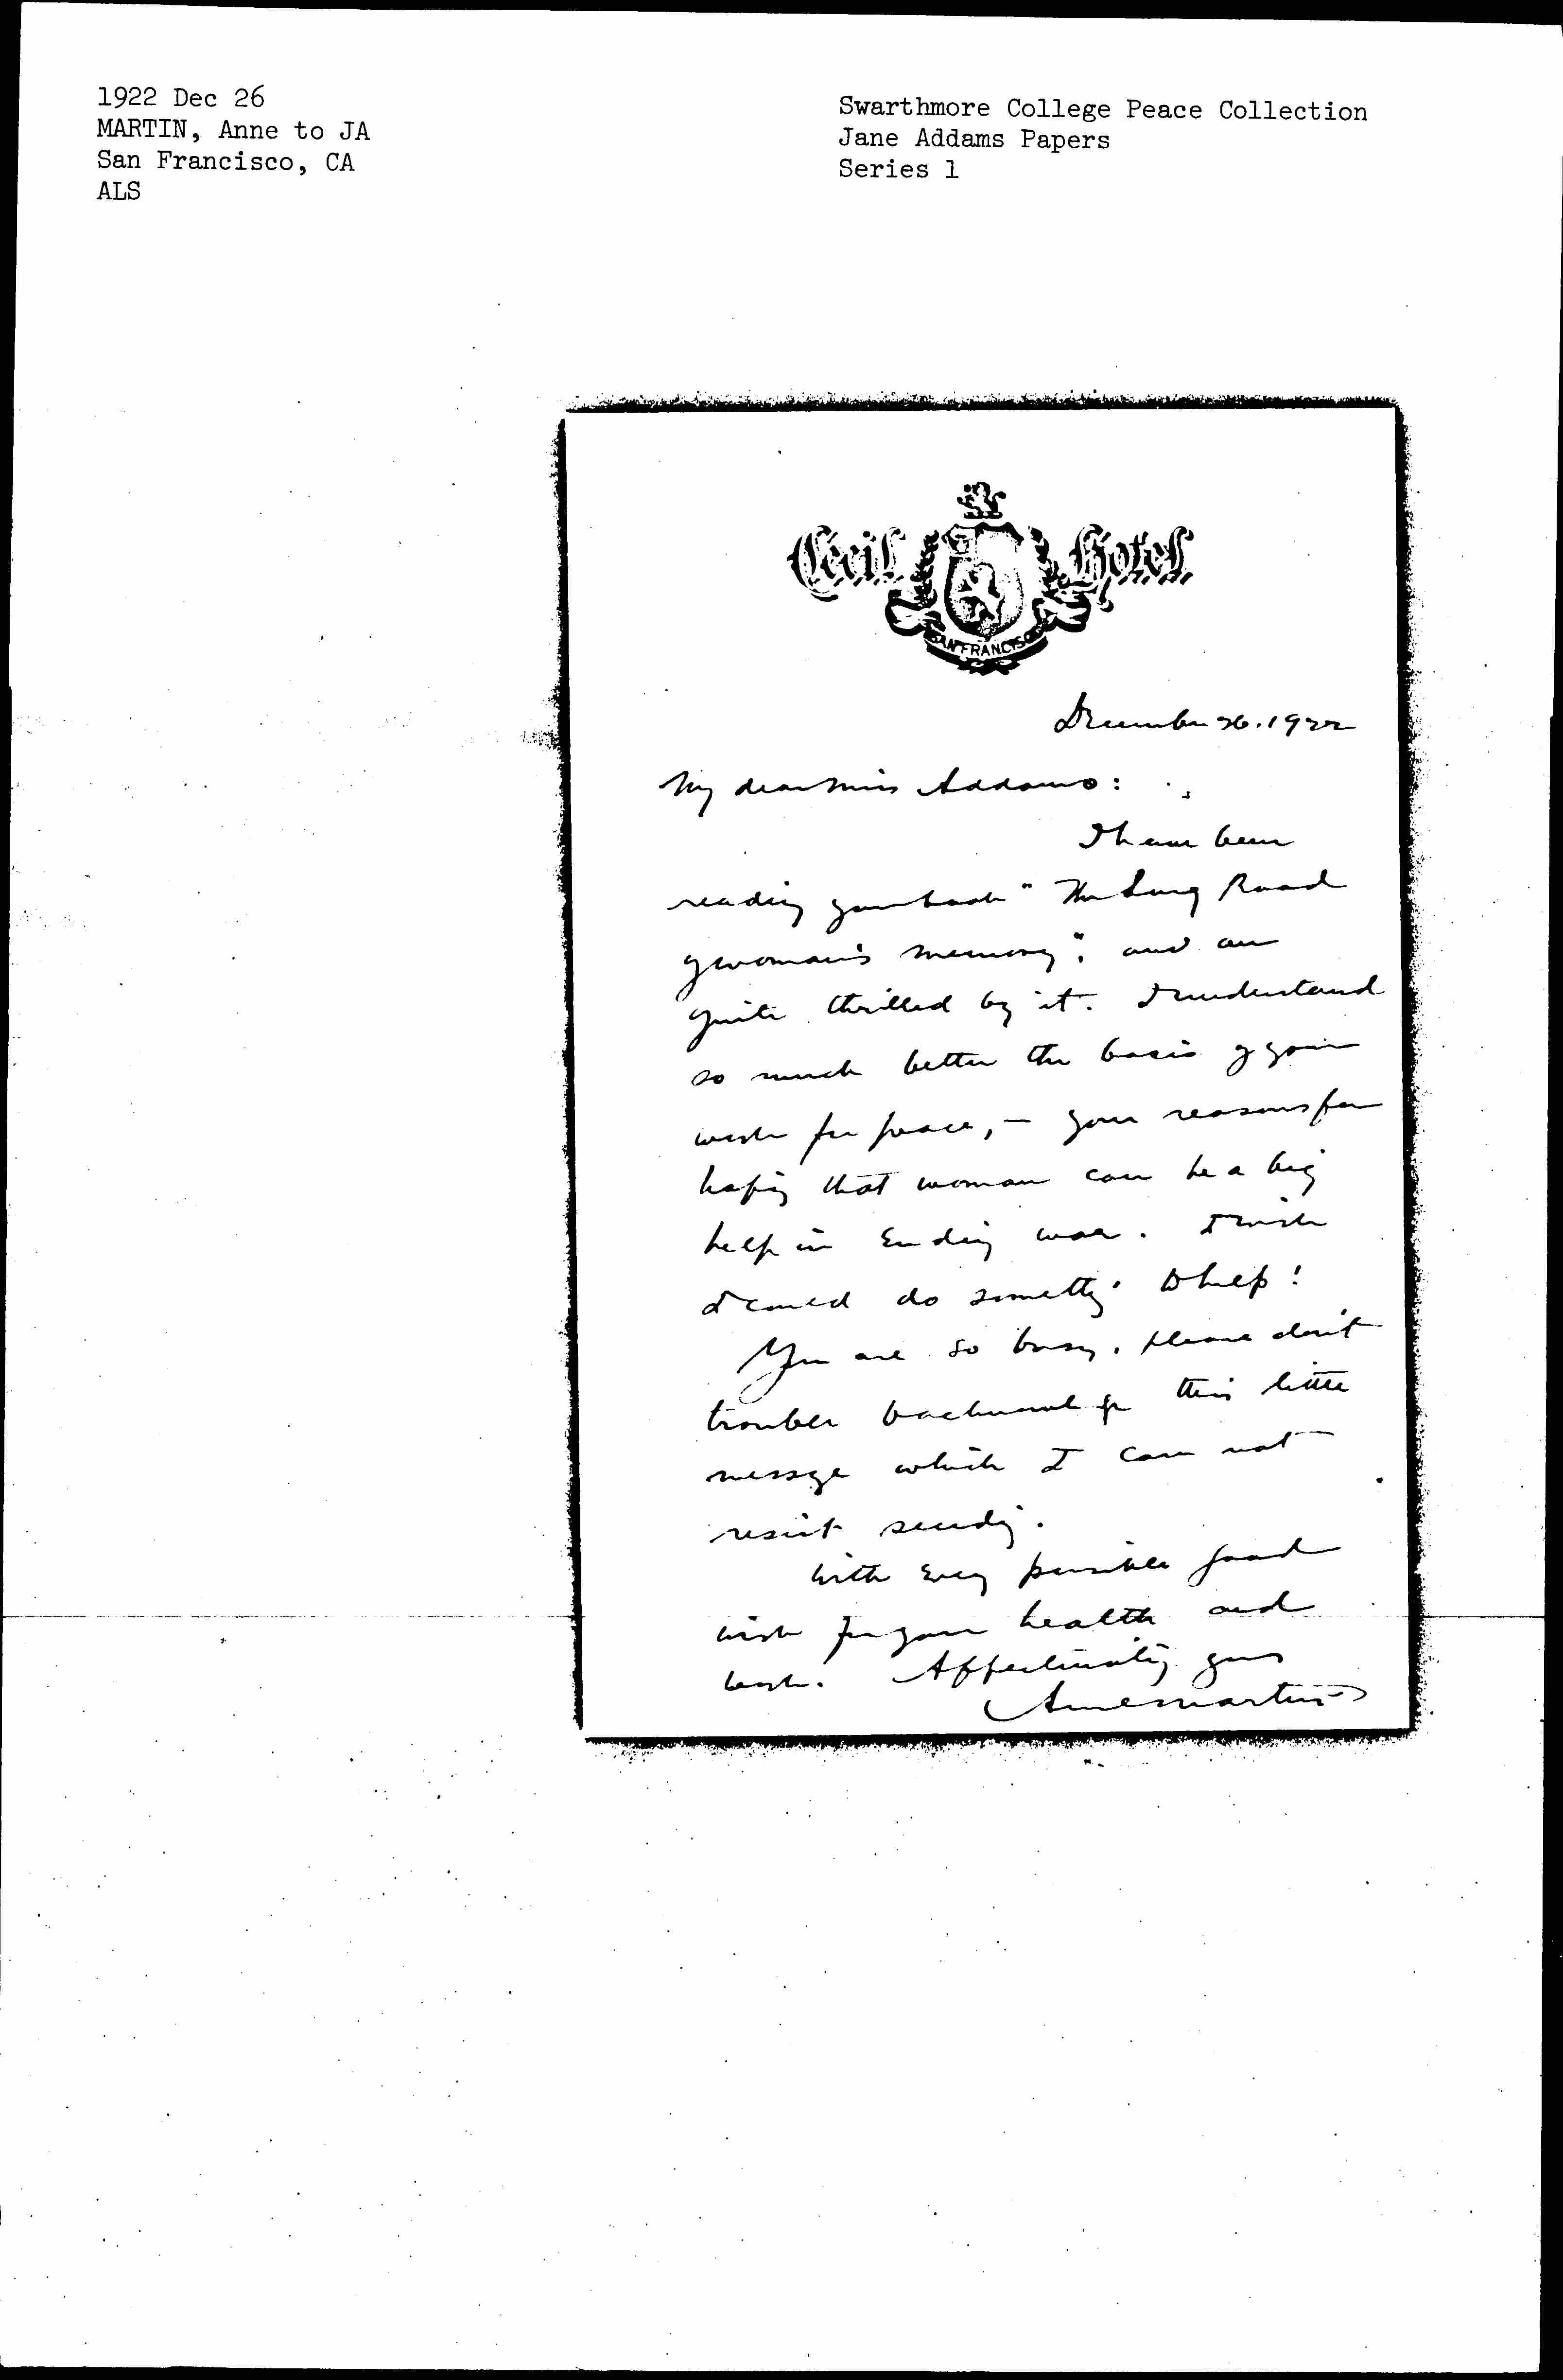 1922 Dec 26
MARTIN, Anne to JA
San Francisco, CA
ALS
Swarthmore College Peace Collection
Jane Addams Papers
Series 1
Cecil Hotel
SAN FRANCISCO
December 26. 1922
My dear Miss Addams:
I have been
reading your book "The Long Road
of Woman's Memory", and am
quite thrilled by it. I understand
so much better the basis of your
work for peace, – your reasons for
hoping that woman can be a big
help in ending war. I wish
I could do something to help!
You are so busy, please don't
trouble to acknowledge this little
message which I can not
resist sending.
With every possible good
wish for your health and
work. Affectionately yours
Anne Martin